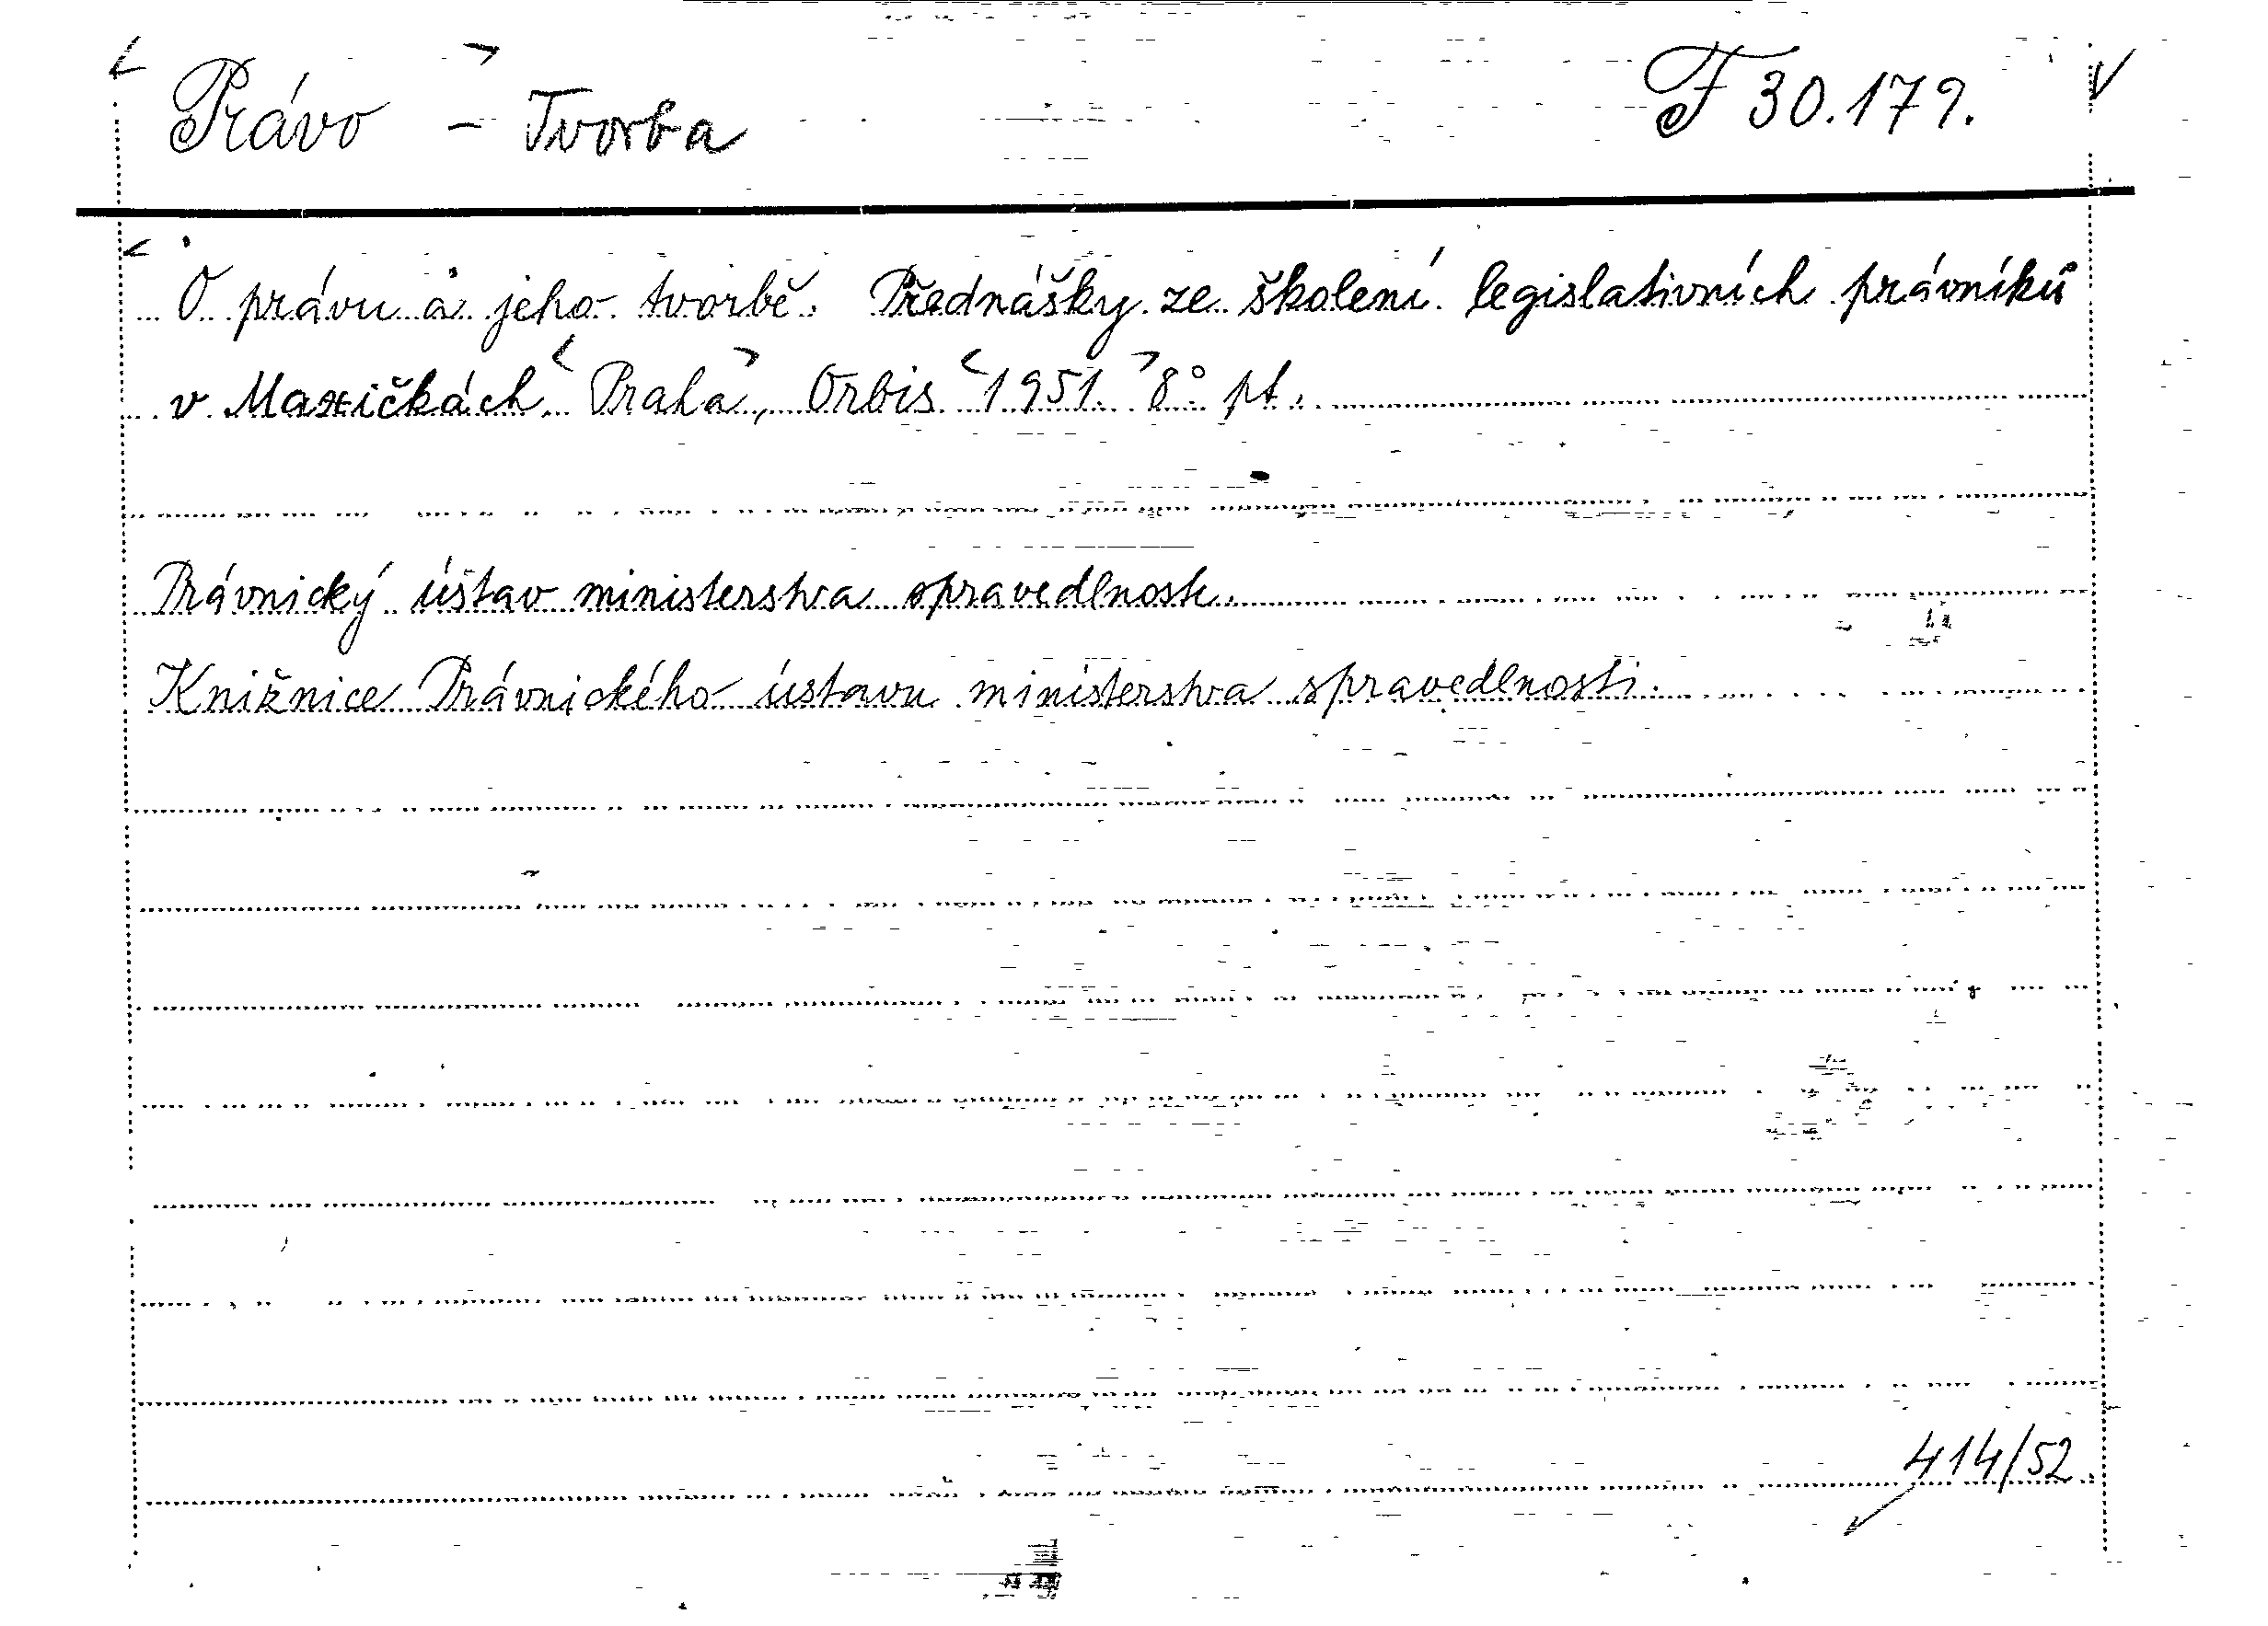 Právo - Tvorba F 30.179.
O právu a jeho tvorbě. Přednášky ze školení legislativních právníků
v Maxičkách. Praha, Orbis 1951. 8° pt.
Právnický ústav ministerstva spravedlnosti.
Knižnice Právnického ústavu ministerstva spravedlnosti.
414/52.